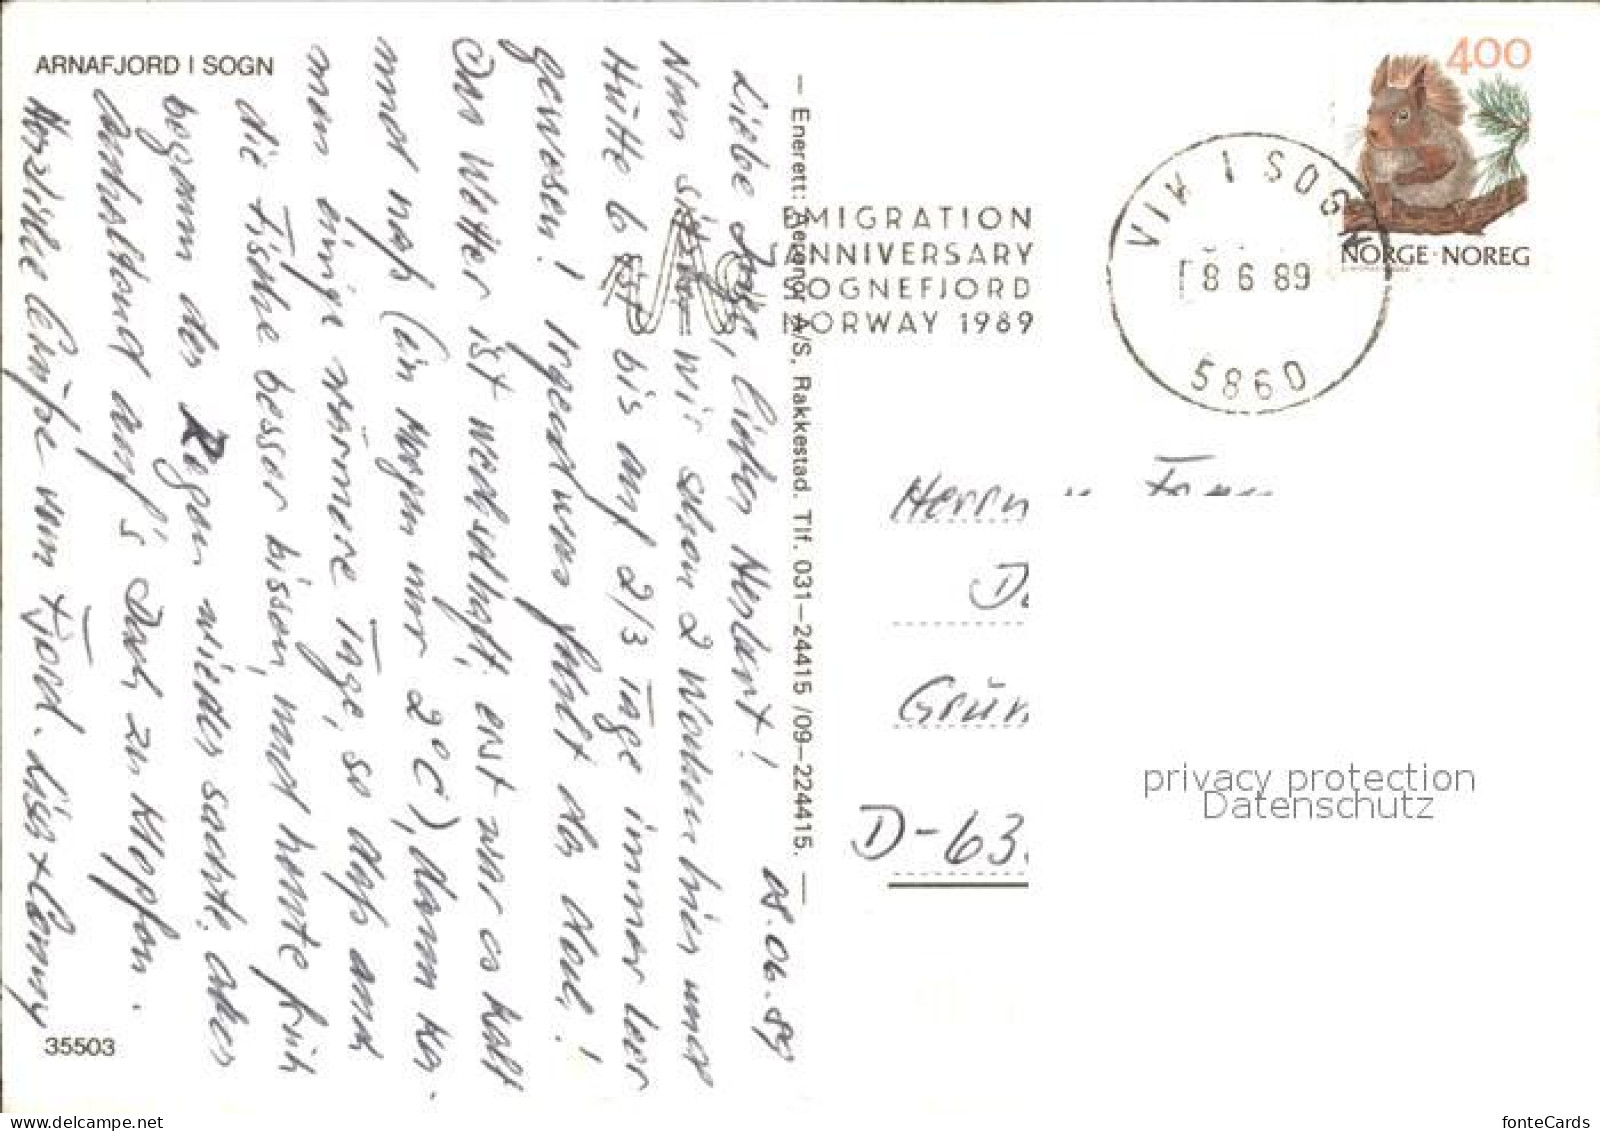 ARNAFJORD I SOGN
08.06.89
Liebe Inge, lieber Herbert!
Nun sitzen wir schon 2 Wochen hier und
Hütte 6 ist bis auf 2/3 Tage immer leer
gewesen! Irgendwas fehlt da doch!
Das Wetter ist wechselhaft, erst war es kalt
und naß (ein Morgen nur 2°C), dann ka-
men einige wärmere Tage, so daß auch
die Fische besser bissen, und heute früh
begann der Regen wieder sachte, aber
anhaltend auf's Dach zu klopfen.
Herzliche Grüße vom Fjord.
35503
— Enerett: Aerend A/S, Rakkestad. Tlf. 031–24415 /09–224415. —
EMIGRATION
ANNIVERSARY
SOGNEFJORD
NORWAY 1989
VIK I SOGN
8 6 89
5860
400
NORGE·NOREG
Herrn
D-63
privacy protection
Datenschutz
www.delcampe.net
fonteCards